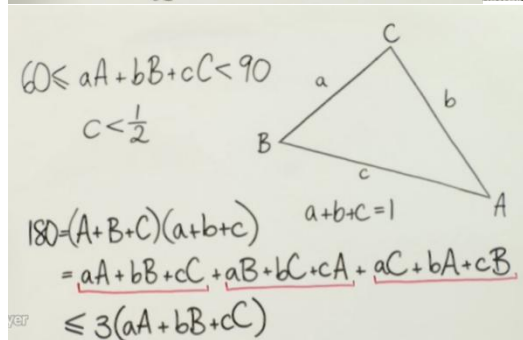 60 ≤ aA + bB + cC < 90
c < 1/2
C
a
b
B
c
A
a+b+c = 1
180 = (A+B+C)(a+b+c)
= aA + bB + cC + aB + bC + cA + aC + bA + cB
≤ 3(aA + bB + cC)
yer